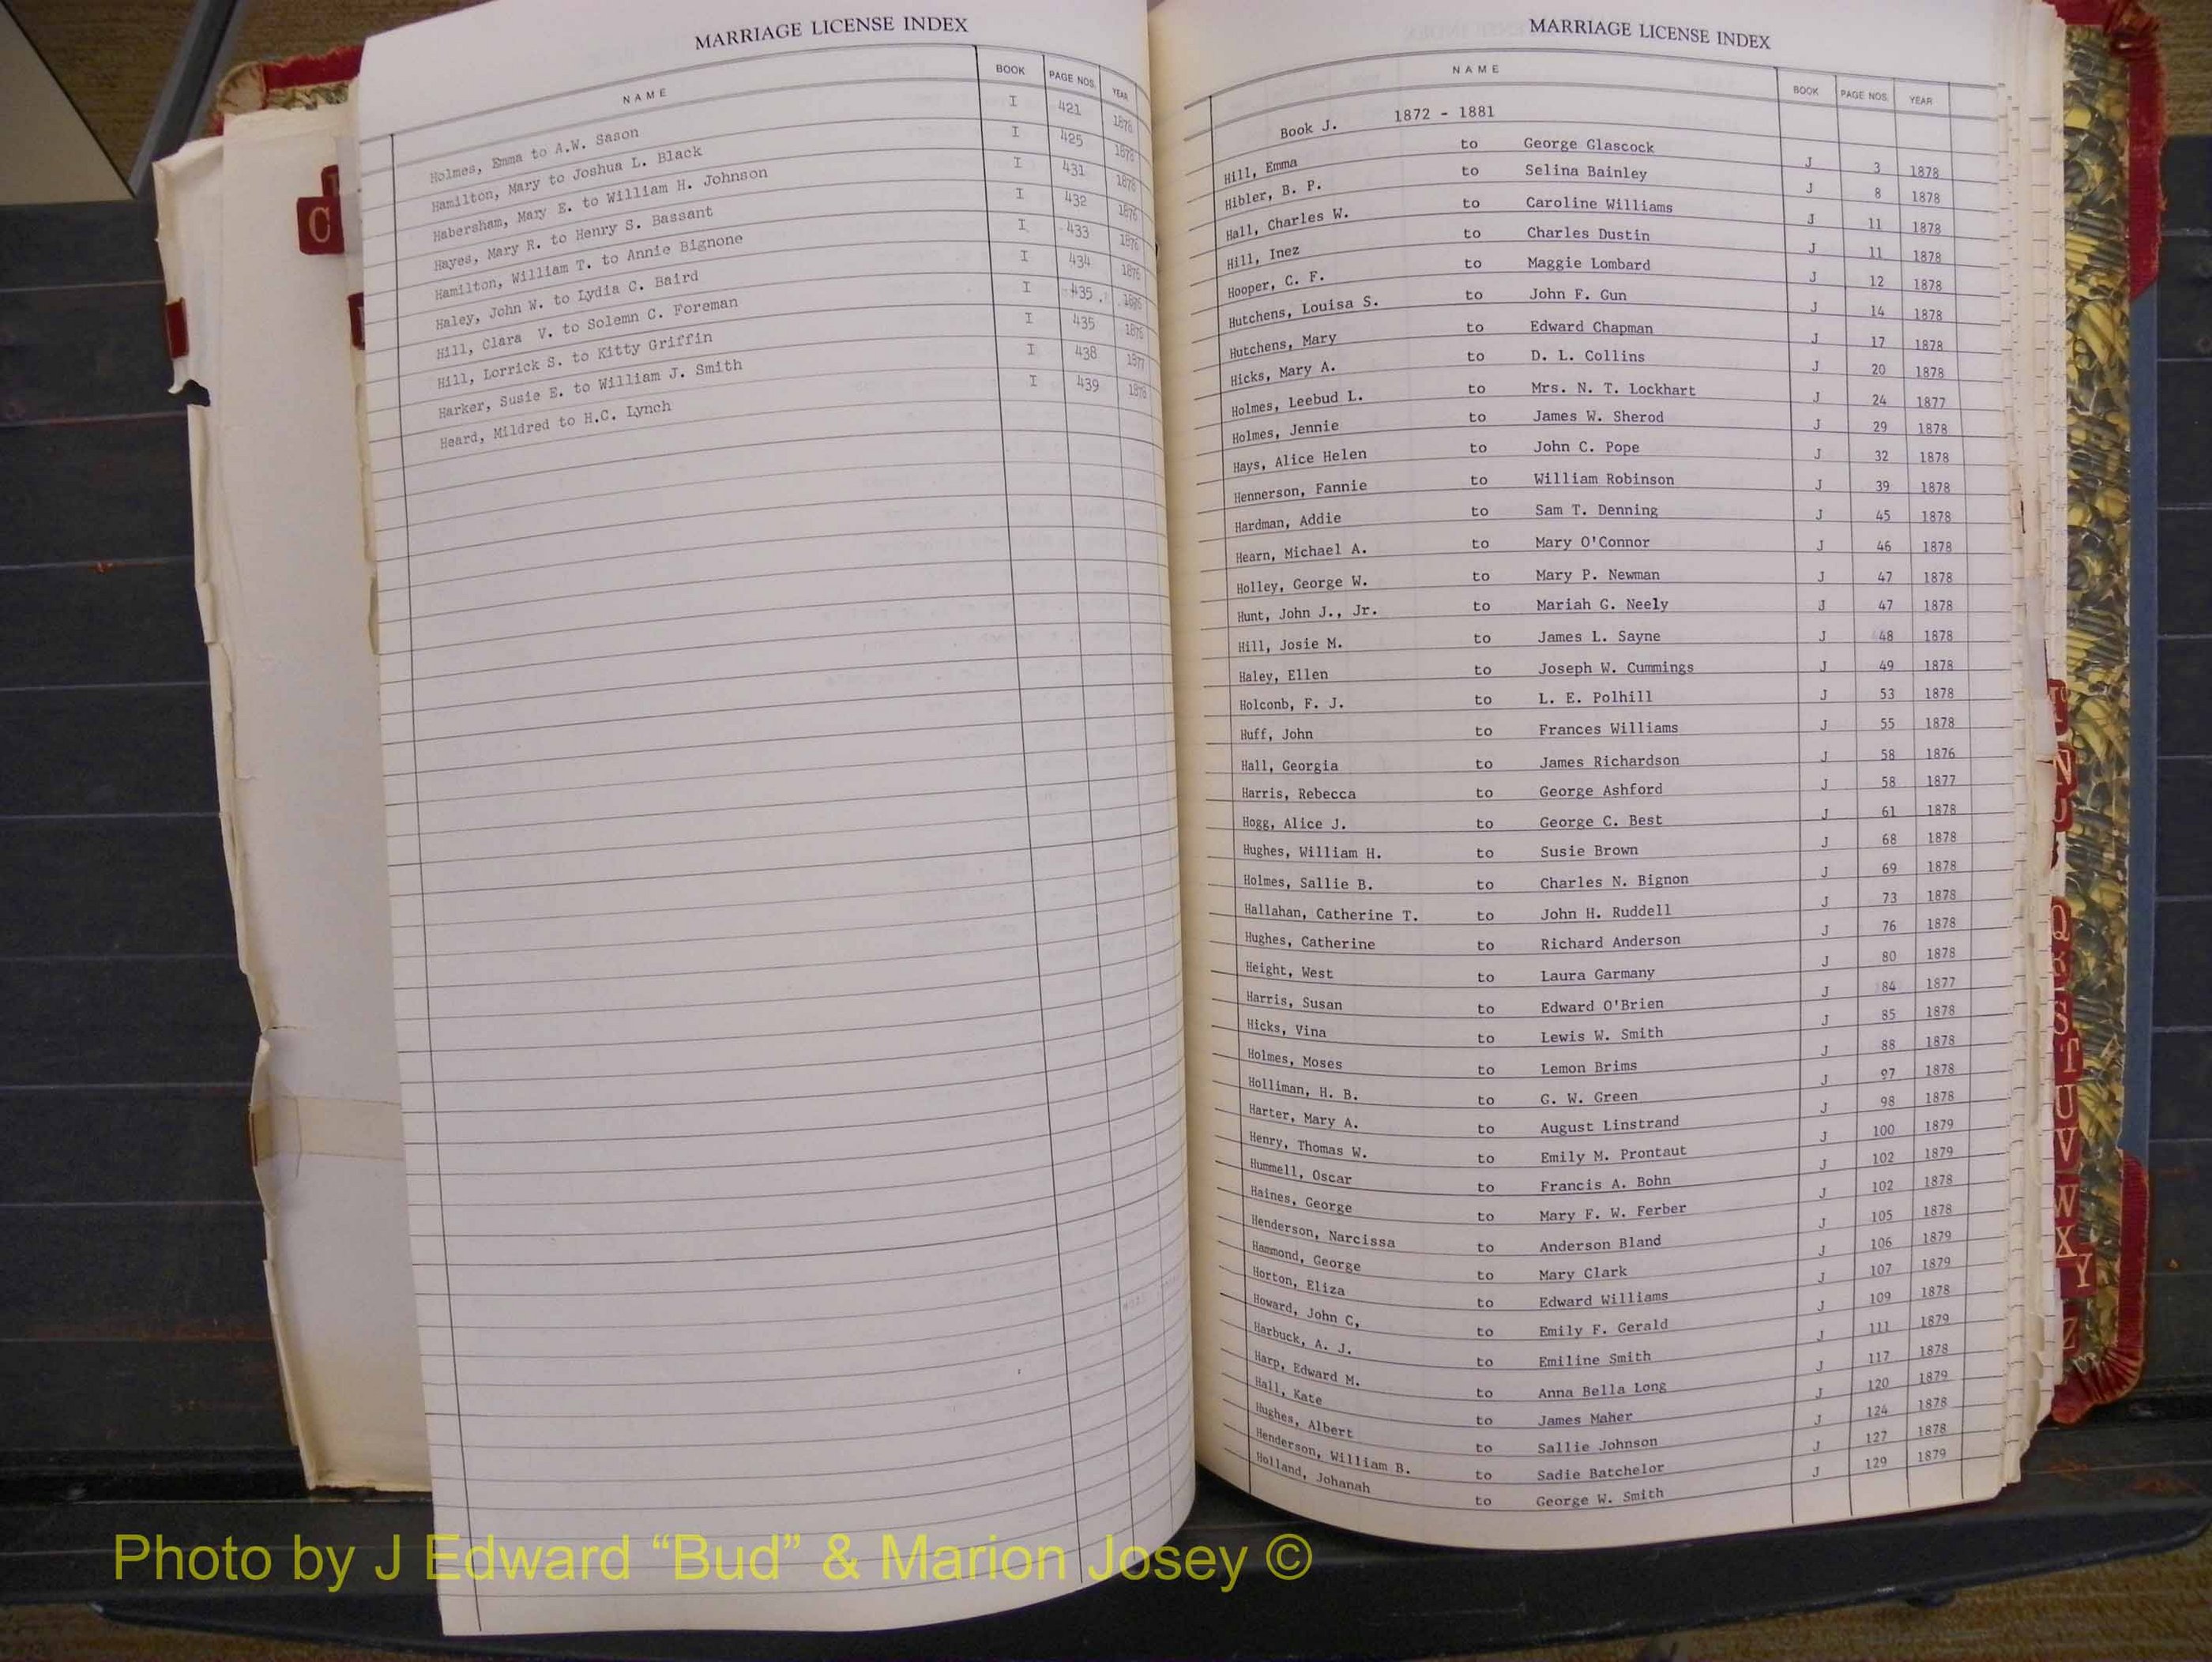 MARRIAGE LICENSE INDEX
NAME BOOK PAGE NOS. YEAR
Holmes, Emma to A.W. Sason I 421 1878
Hamilton, Mary to Joshua L. Black I 425 1878
Habersham, Mary E. to William H. Johnson I 431 1878
Hayes, Mary R. to Henry S. Bassant I 432 1876
Hamilton, William T. to Annie Bignone I 433 1876
Haley, John W. to Lydia C. Baird I 434 1876
Hill, Clara V. to Solemn C. Foreman I 435
Hill, Lorrick S. to Kitty Griffin I 435 1876
Harker, Susie E. to William J. Smith I 438 1877
Heard, Mildred to H.C. Lynch I 439 1878
MARRIAGE LICENSE INDEX
NAME BOOK PAGE NOS. YEAR
Book J. 1872 - 1881
Hill, Emma to George Glascock J 3 1878
Hibler, B. P. to Selina Bainley J 8 1878
Hall, Charles W. to Caroline Williams J 11 1878
Hill, Inez to Charles Dustin J 11 1878
Hooper, C. F. to Maggie Lombard J 12 1878
Hutchens, Louisa S. to John F. Gun J 14 1878
Hutchens, Mary to Edward Chapman J 17 1878
Hicks, Mary A. to D. L. Collins J 20 1878
Holmes, Leebud L. to Mrs. N. T. Lockhart J 24 1877
Holmes, Jennie to James W. Sherod J 29 1878
Hays, Alice Helen to John C. Pope J 32 1878
Hennerson, Fannie to William Robinson J 39 1878
Hardman, Addie to Sam T. Denning J 45 1878
Hearn, Michael A. to Mary O'Connor J 46 1878
Holley, George W. to Mary P. Newman J 47 1878
Hunt, John J., Jr. to Mariah G. Neely J 47 1878
Hill, Josie M. to James L. Sayne J 48 1878
Haley, Ellen to Joseph W. Cummings J 49 1878
Holconb, F. J. to L. E. Polhill J 53 1878
Huff, John to Frances Williams J 55 1878
Hall, Georgia to James Richardson J 58 1876
Harris, Rebecca to George Ashford J 58 1877
Hogg, Alice J. to George C. Best J 61 1878
Hughes, William H. to Susie Brown J 68 1878
Holmes, Sallie B. to Charles N. Bignon J 69 1878
Hallahan, Catherine T. to John H. Ruddell J 73 1878
Hughes, Catherine to Richard Anderson J 76 1878
Height, West to Laura Garmany J 80 1878
Harris, Susan to Edward O'Brien J 84 1877
Hicks, Vina to Lewis W. Smith J 85 1878
Holmes, Moses to Lemon Brims J 88 1878
Holliman, H. B. to G. W. Green J 97 1878
Harter, Mary A. to August Linstrand J 98 1878
Henry, Thomas W. to Emily M. Prontaut J 100 1879
Hummell, Oscar to Francis A. Bohn J 102 1879
Haines, George to Mary F. W. Ferber J 102 1878
Henderson, Narcissa to Anderson Bland J 105 1878
Hammond, George to Mary Clark J 106 1879
Horton, Eliza to Edward Williams J 107 1879
Howard, John C, to Emily F. Gerald J 109 1878
Harbuck, A. J. to Emiline Smith J 111 1879
Harp, Edward M. to Anna Bella Long J 117 1878
Hall, Kate to James Maher J 120 1879
Hughes, Albert to Sallie Johnson J 124 1878
Henderson, William B. to Sadie Batchelor J 127 1878
Holland, Johanah to George W. Smith J 129 1879
C
Q
R
S
T
U
V
W
X
Y
Z
Photo by J Edward “Bud” & Marion Josey ©